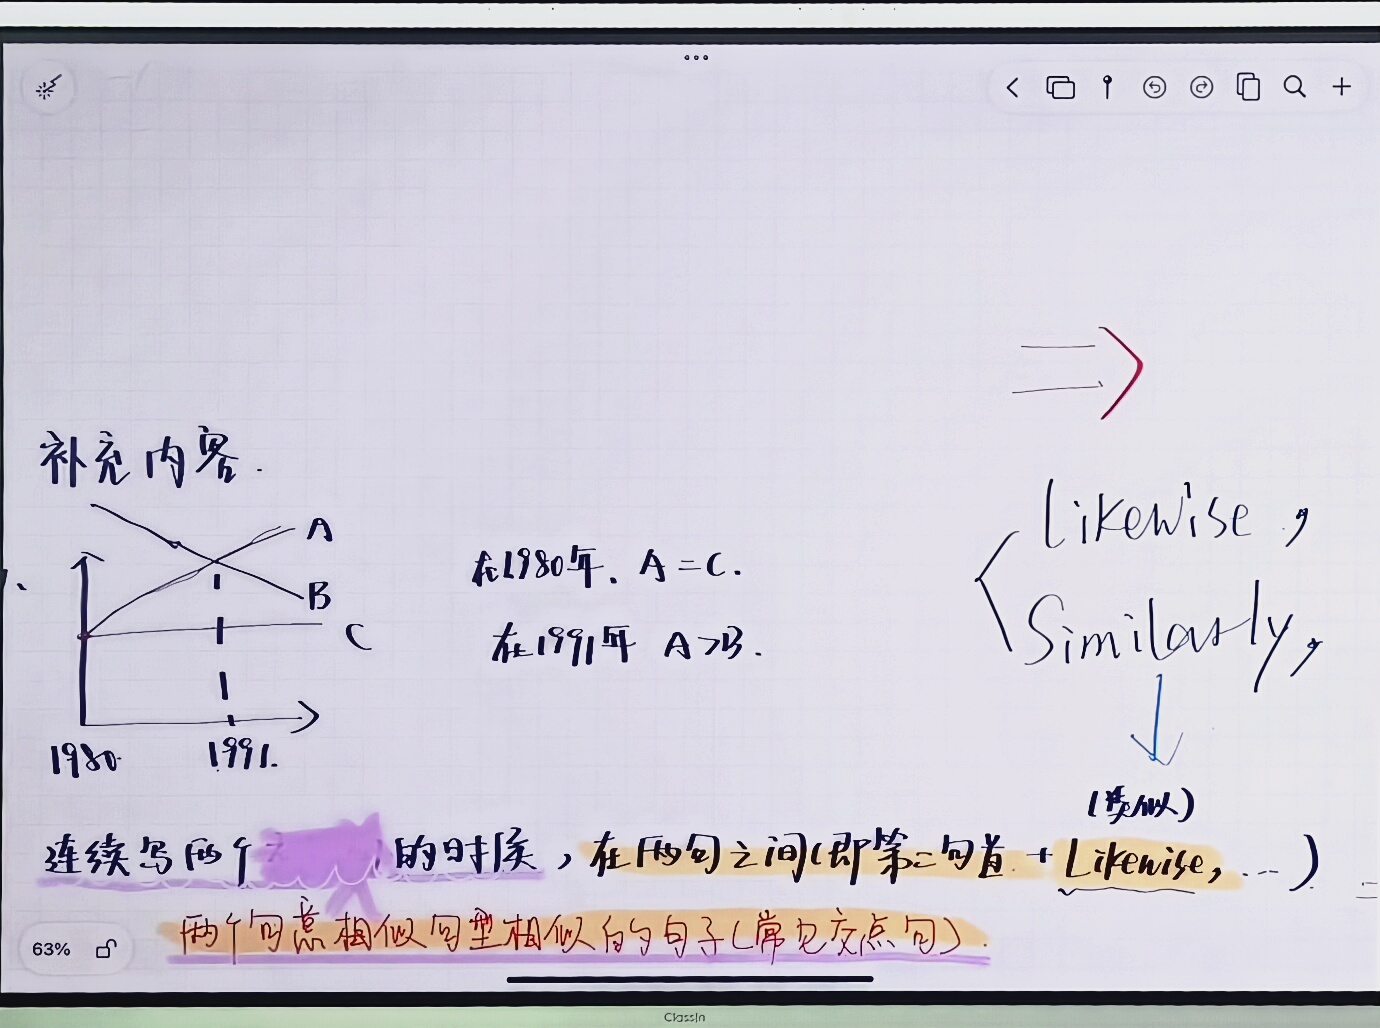 补充内容.
A
B
C
1980
1991.
在1980年, A=C.
在1991年 A>B.
Likewise,
Similarly,
(类似)
连续写两个 的时候,在两句之间(即第二句首+Likewise,...)
两个句意相似句型相似的句子(常见交点句).
63%
ClassIn